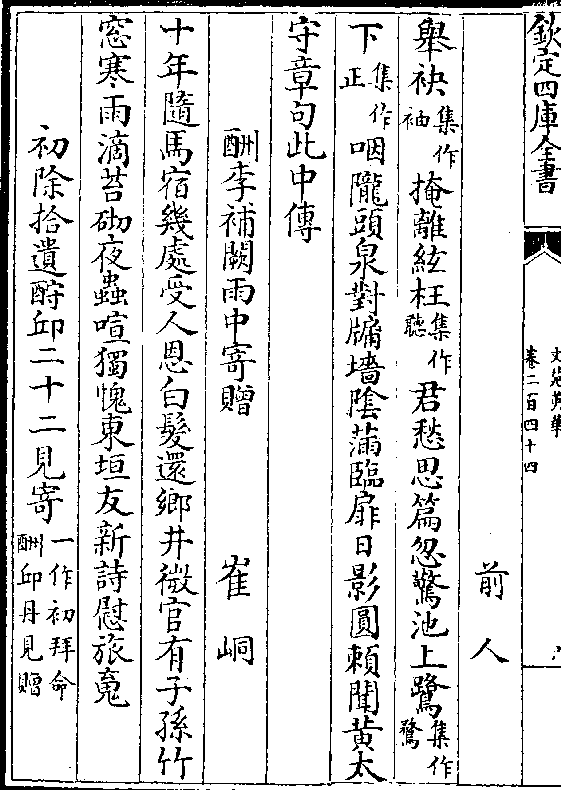 欽定四庫全書
文苑英華
卷二百四十四
前人
舉袂集作袖掩離絃枉集作聽君愁思篇忽驚池上鷺集作鶩
下集作正咽隴頭泉對牖墻陰滿臨扉日影圓頼聞黄太
守章句此中傳
酬李補闕雨中寄贈　崔峒
十年隨馬宿幾處受人恩白髮還鄉井微官有子孫竹
窓寒雨滴苔砌夜蟲喧獨愧東垣友新詩慰旅䰟
初除拾遺酧邱二十二見寄一作初拜命酬邱丹見贈